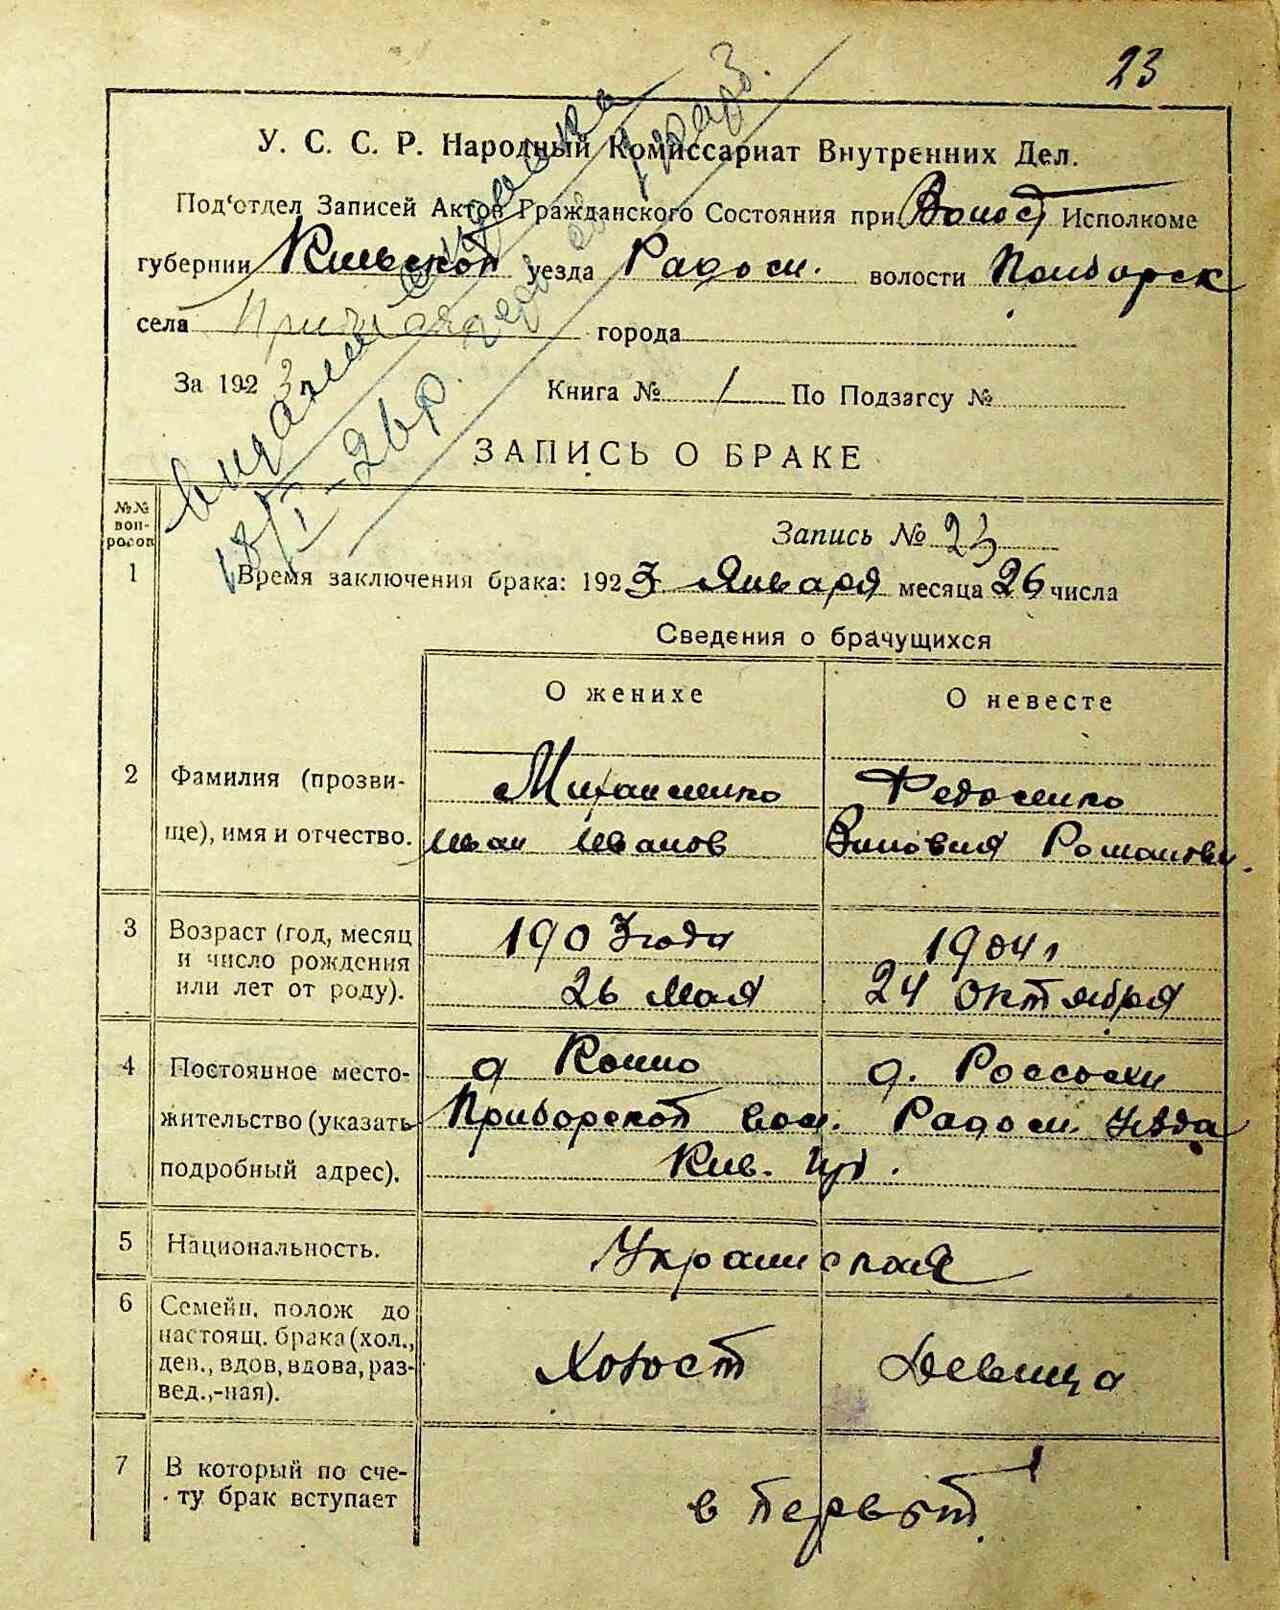 23
У. С. С. Р. Народный Комиссариат Внутренних Дел.
Под‘отдел Записей Актов Гражданского Состояния при Волост Исполкоме
губернии Киевской уезда Радом. волости Приборск
села города
За 1923 г. Книга № 1 По Подзагсу №
ЗАПИСЬ О БРАКЕ
18/I-26р.
№№ вопросов
Запись № 23
1 Время заключения брака: 1923 Января месяца 26 числа
Сведения о брачущихся
О женихе О невесте
2 Фамилия (прозви- Михайленко Федосенко
ще), имя и отчество. Иван Иванов Зиновия Романовн.
3 Возраст (год, месяц 1903 года 1904 г
и число рождения
или лет от роду). 26 Мая 24 Октября
4 Постоянное место- д д. Россохи
жительство (указать Приборской вол. Радом. Уезда
подробный адрес). Киев. Губ.
5 Национальность. Украинская
6 Семейн. полож до
настоящ. брака (хол., Холост Девица
дев., вдов, вдова, раз-
вед.,-ная).
7 В который по сче- в первый
ту брак вступает